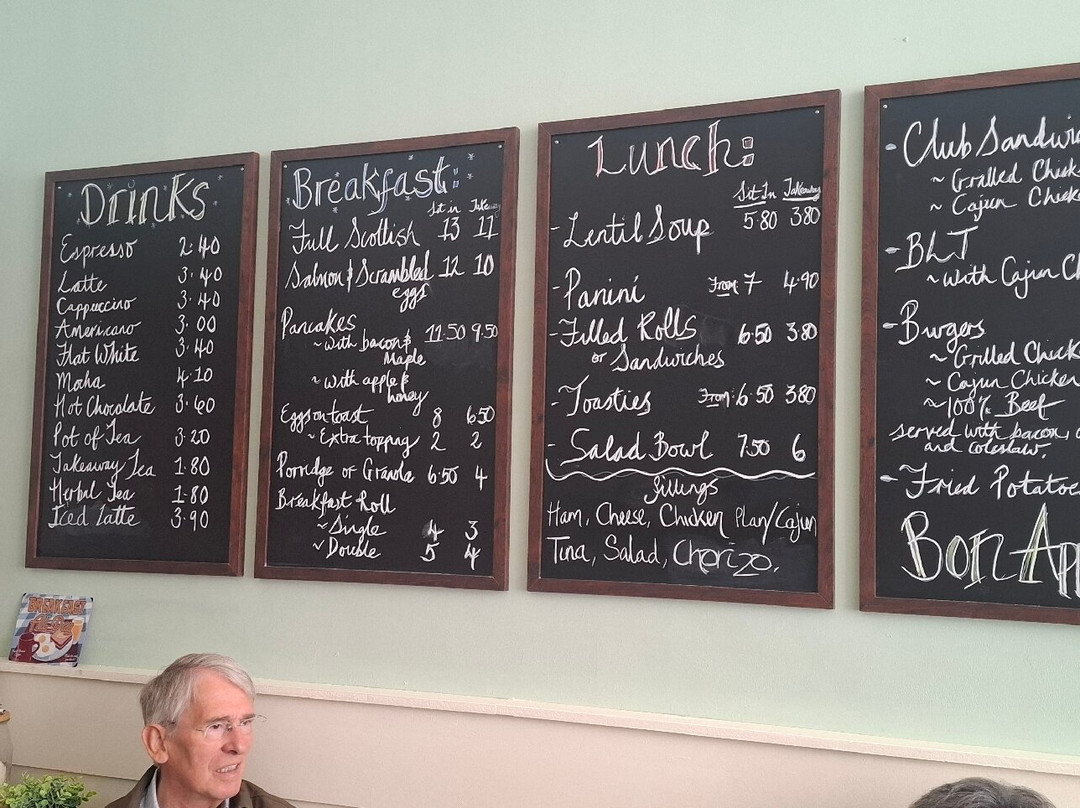 Drinks
Espresso 2.40
Latte 3.40
Cappuccino 3.40
Americano 3.00
Flat White 3.40
Mocha 4.10
Hot Chocolate 3.60
Pot of Tea 3.20
Takeaway Tea 1.80
Herbal Tea 1.80
Iced Latte 3.90
Breakfast:
Sit in Takeaway
Full Scottish 13 11
Salmon & Scrambled 12 10
eggs
Pancakes
~ with bacon & 11.50 9.50
Maple
~ with apple &
honey
Eggs on toast 8 6.50
~ Extra topping 2 2
Porridge or Granola 6.50 4
Breakfast Roll
~ Single 4 3
~ Double 5 4
Lunch:
Sit In Takeaway
- Lentil Soup 5.80 3.80
- Panini From 7 4.90
- Filled Rolls 6.50 3.80
or Sandwiches
- Toasties From 6.50 3.80
- Salad Bowl 7.50 6
fillings
Ham, Cheese, Chicken Plan/Cajun
Tuna, Salad, Chorizo.
- Club Sandwic
~ Grilled Chick
~ Cajun Chicke
- BLT
~ with Cajun Ch
- Burgers
~ Grilled Chick
~ Cajun Chicken
~ 100% Beef
served with bacon,
and coleslaw.
- Fried Potatoe
Bon App
BREAKFAST